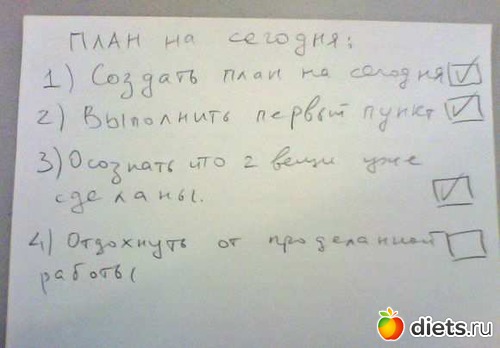 ПЛАН на сегодня:
1) Создать план на сегодня
2) Выполнить первый пункт
3) Осознать что 2 вещи уже
сделаны.
4) Отдохнуть от проделанной
работы
diets.ru